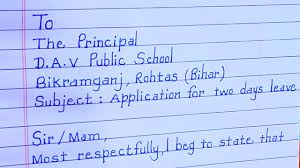 To
The Principal
D.A.V Public School
Bikramganj, Rohtas (Bihar)
Subject : Application for two days leave
Sir/Mam,
Most respectfully, I beg to state that